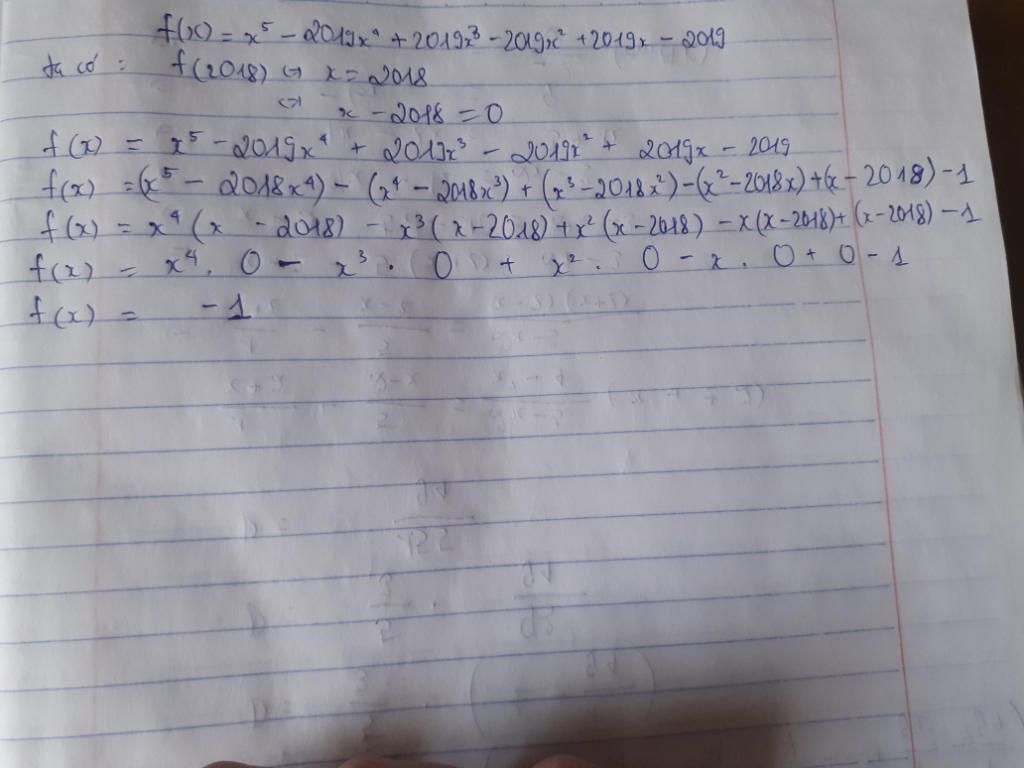 f(x) = x⁵ - 2019x⁴ + 2019x³ - 2019x² + 2019x - 2019
ta có : f(2018) ⇔ x = 2018
⇔ x - 2018 = 0
f(x) = x⁵ - 2019x⁴ + 2019x³ - 2019x² + 2019x - 2019
f(x) = (x⁵ - 2018x⁴) - (x⁴ - 2018x³) + (x³ - 2018x²) - (x² - 2018x) + (x - 2018) - 1
f(x) = x⁴ (x - 2018) - x³ (x - 2018) + x² (x - 2018) - x (x - 2018) + (x - 2018) - 1
f(x) = x⁴ . 0 - x³ . 0 + x² . 0 - x . 0 + 0 - 1
f(x) = - 1